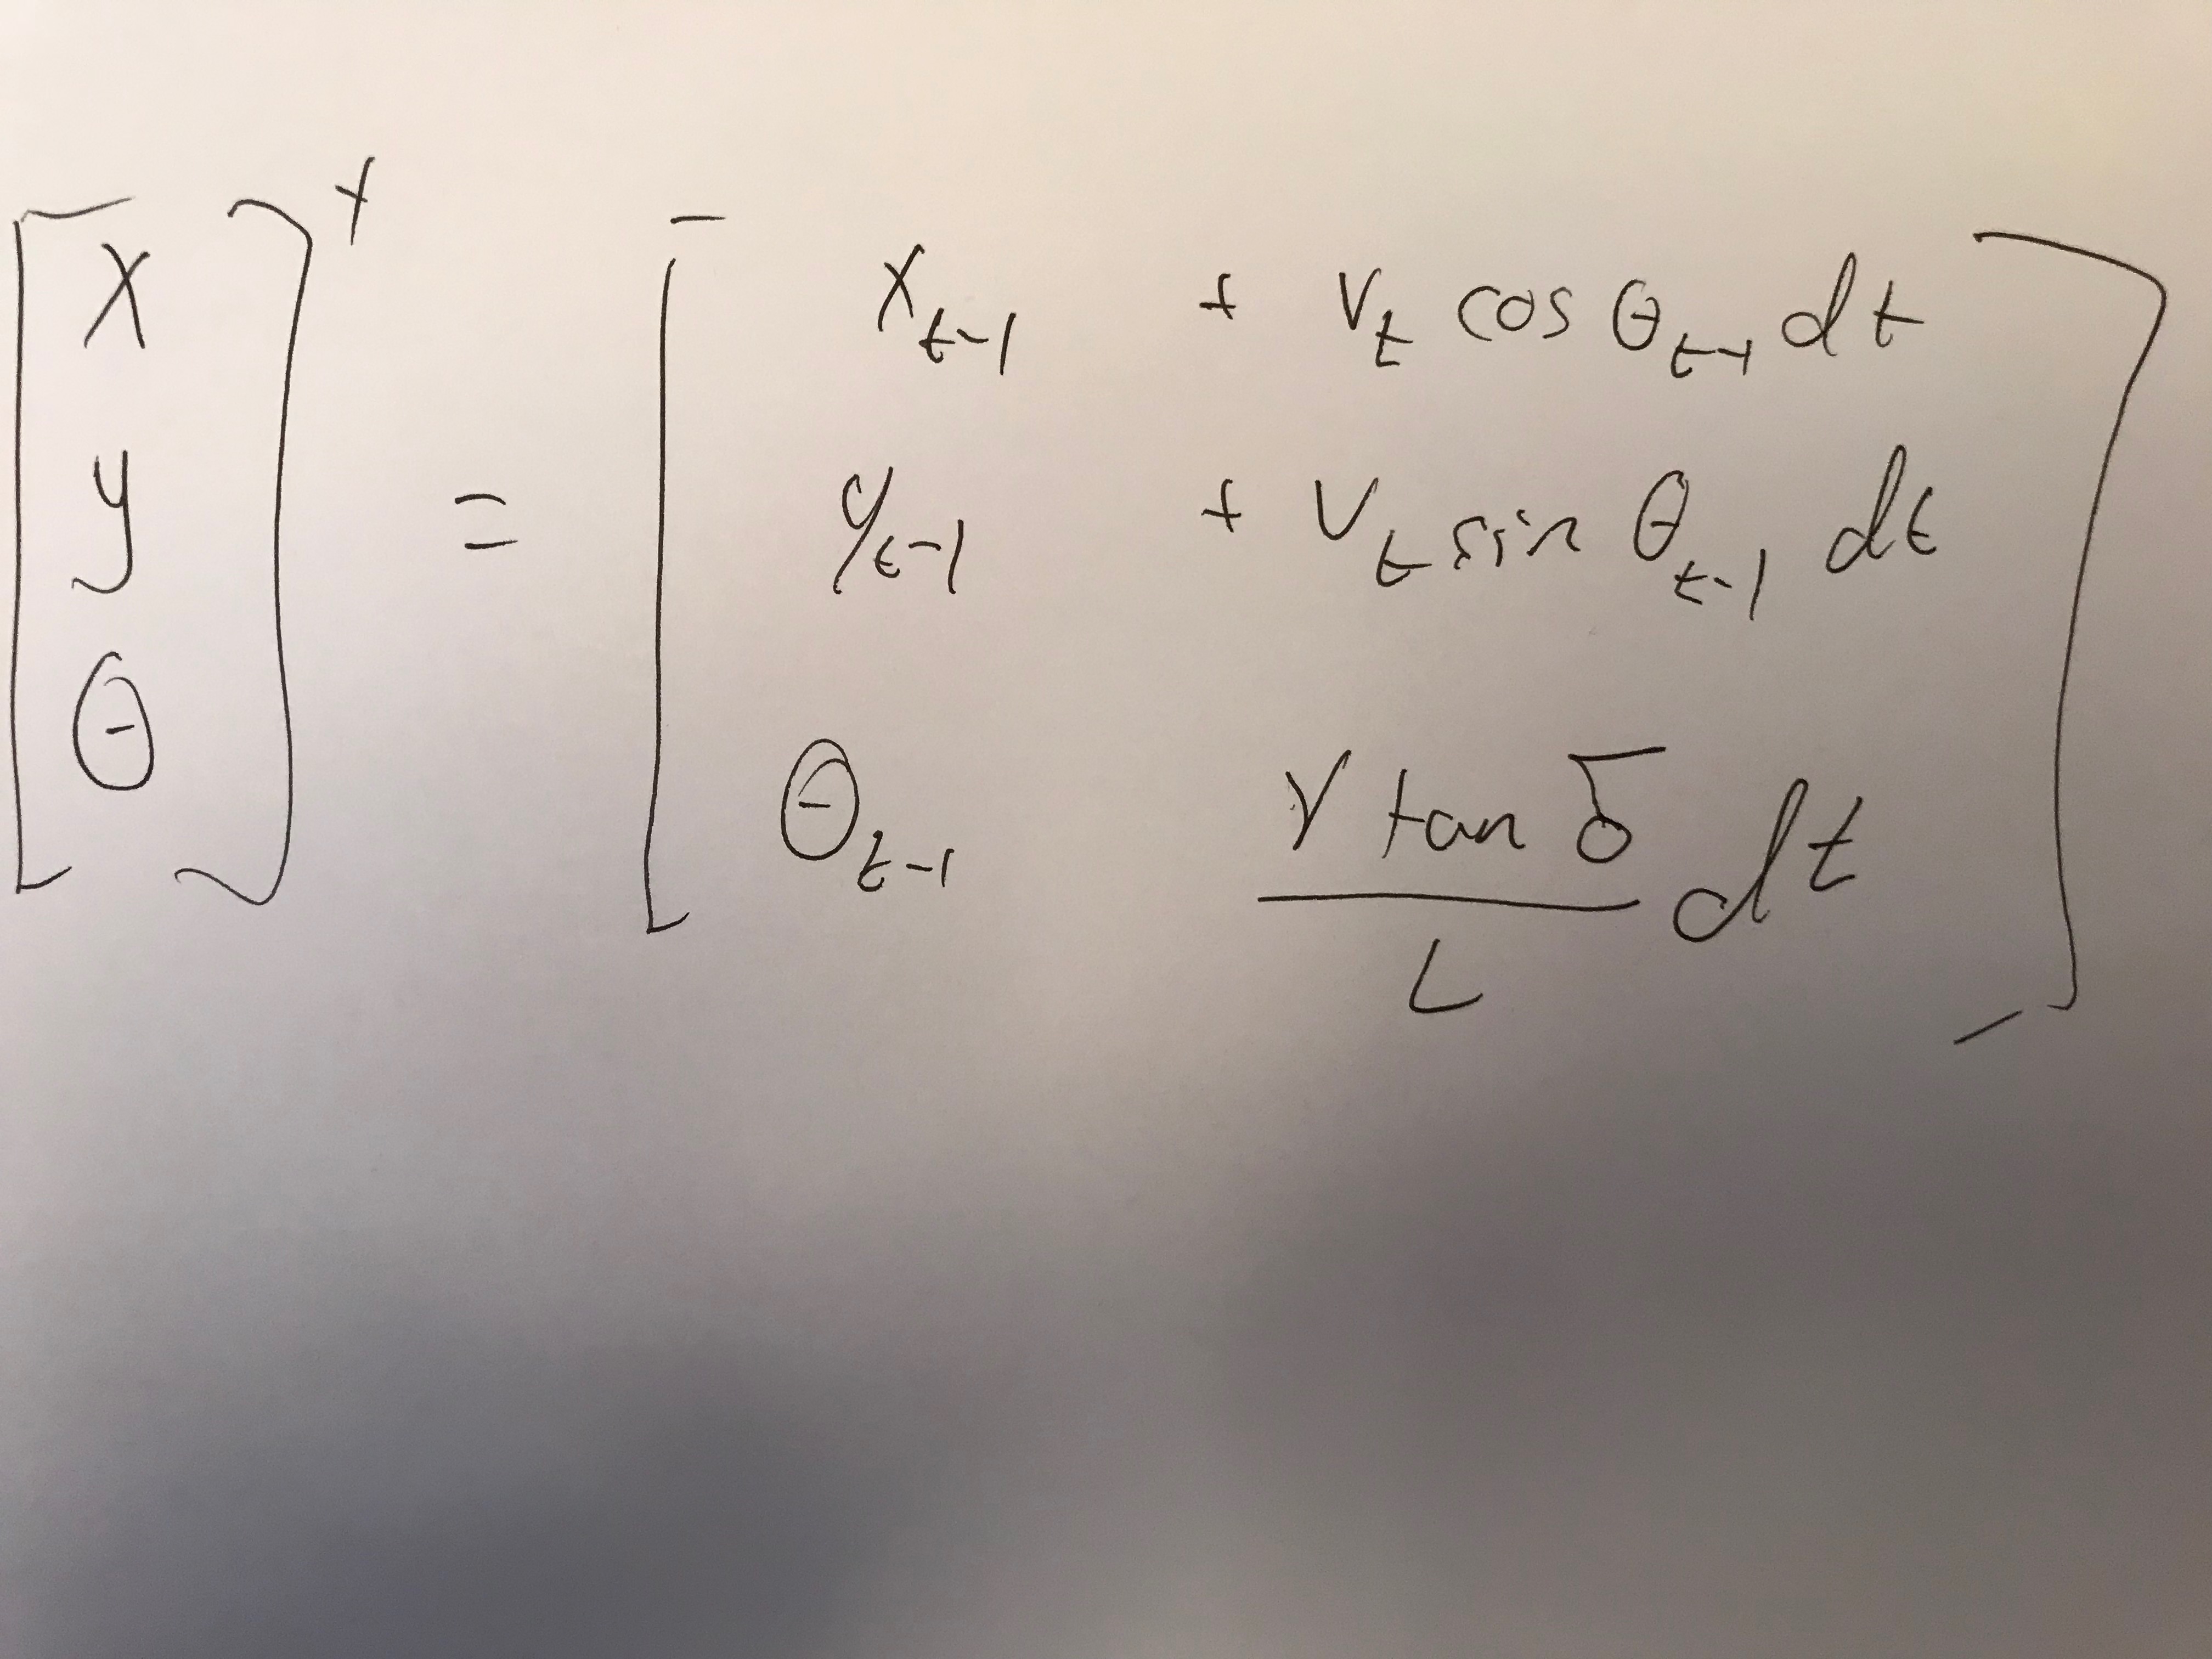 [x y θ]^+ = [x_{t-1} + v_t cos θ_{t-1} dt
y_{t-1} + v_t sin θ_{t-1} dt
θ_{t-1} \frac{v tan δ}{L} dt]